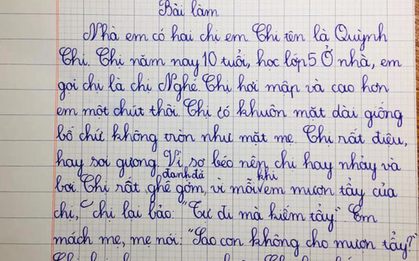 Bài làm
Nhà em có hai chị em Chị tên là Quỳnh
Chi. Chị năm nay 10 tuổi, học lớp 5 Ở nhà, em
gọi chị là chị Nghé Chị hơi mập và cao hơn
em một chút thôi. Chị có khuôn mặt dài giống
bố chứ không tròn như mặt mẹ. Chị rất điệu,
hay soi gương. Vì sợ béo nên chị hay nhảy và
đanh đá khi
bơi Chị rất ghê gớm, vì mỗi em mượn tẩy của
chị, chị lại bảo: "Tự đi mà kiếm tẩy" Em
mách mẹ, mẹ nói: "Sao con không cho mượn tẩy?"